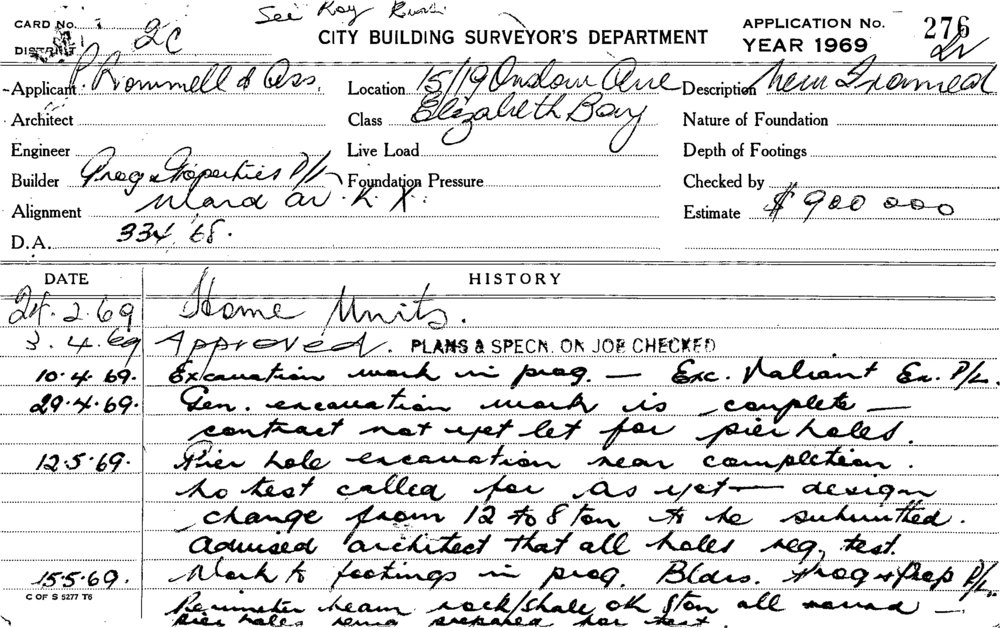 CARD No. See Kay
DISTRICT 2C CITY BUILDING SURVEYOR'S DEPARTMENT APPLICATION No. 276
YEAR 1969
Applicant P. Rommell & Ass. Location 15/19 Onslow Ave Description New Framed
Architect Class Elizabeth Bay Nature of Foundation
Engineer Live Load Depth of Footings
Builder Prog & Properties P/L Foundation Pressure Checked by
Alignment Ward Av. K.X. Estimate $900 000
D.A. 334/68.
DATE HISTORY
24.2.69 Home Units.
3.4.69 Approved. PLANS & SPECN. ON JOB CHECKED
10.4.69. Excavation work in prog. — Exc. Valiant Ex. P/L.
29.4.69. Gen. excavation work is complete —
contract not yet let for pier holes.
12.5.69. Pier hole excavation near completion.
No test called for as yet — design
change from 12 to 8 ton to be submitted.
Advised architect that all holes req. test.
15.5.69. Work to footings in prog. Bldrs. Prog & Prop P/L.
C OF S 5277 T6
Perimeter beam rock/shale ok 8 ton all round —
pier holes being prepared for test.